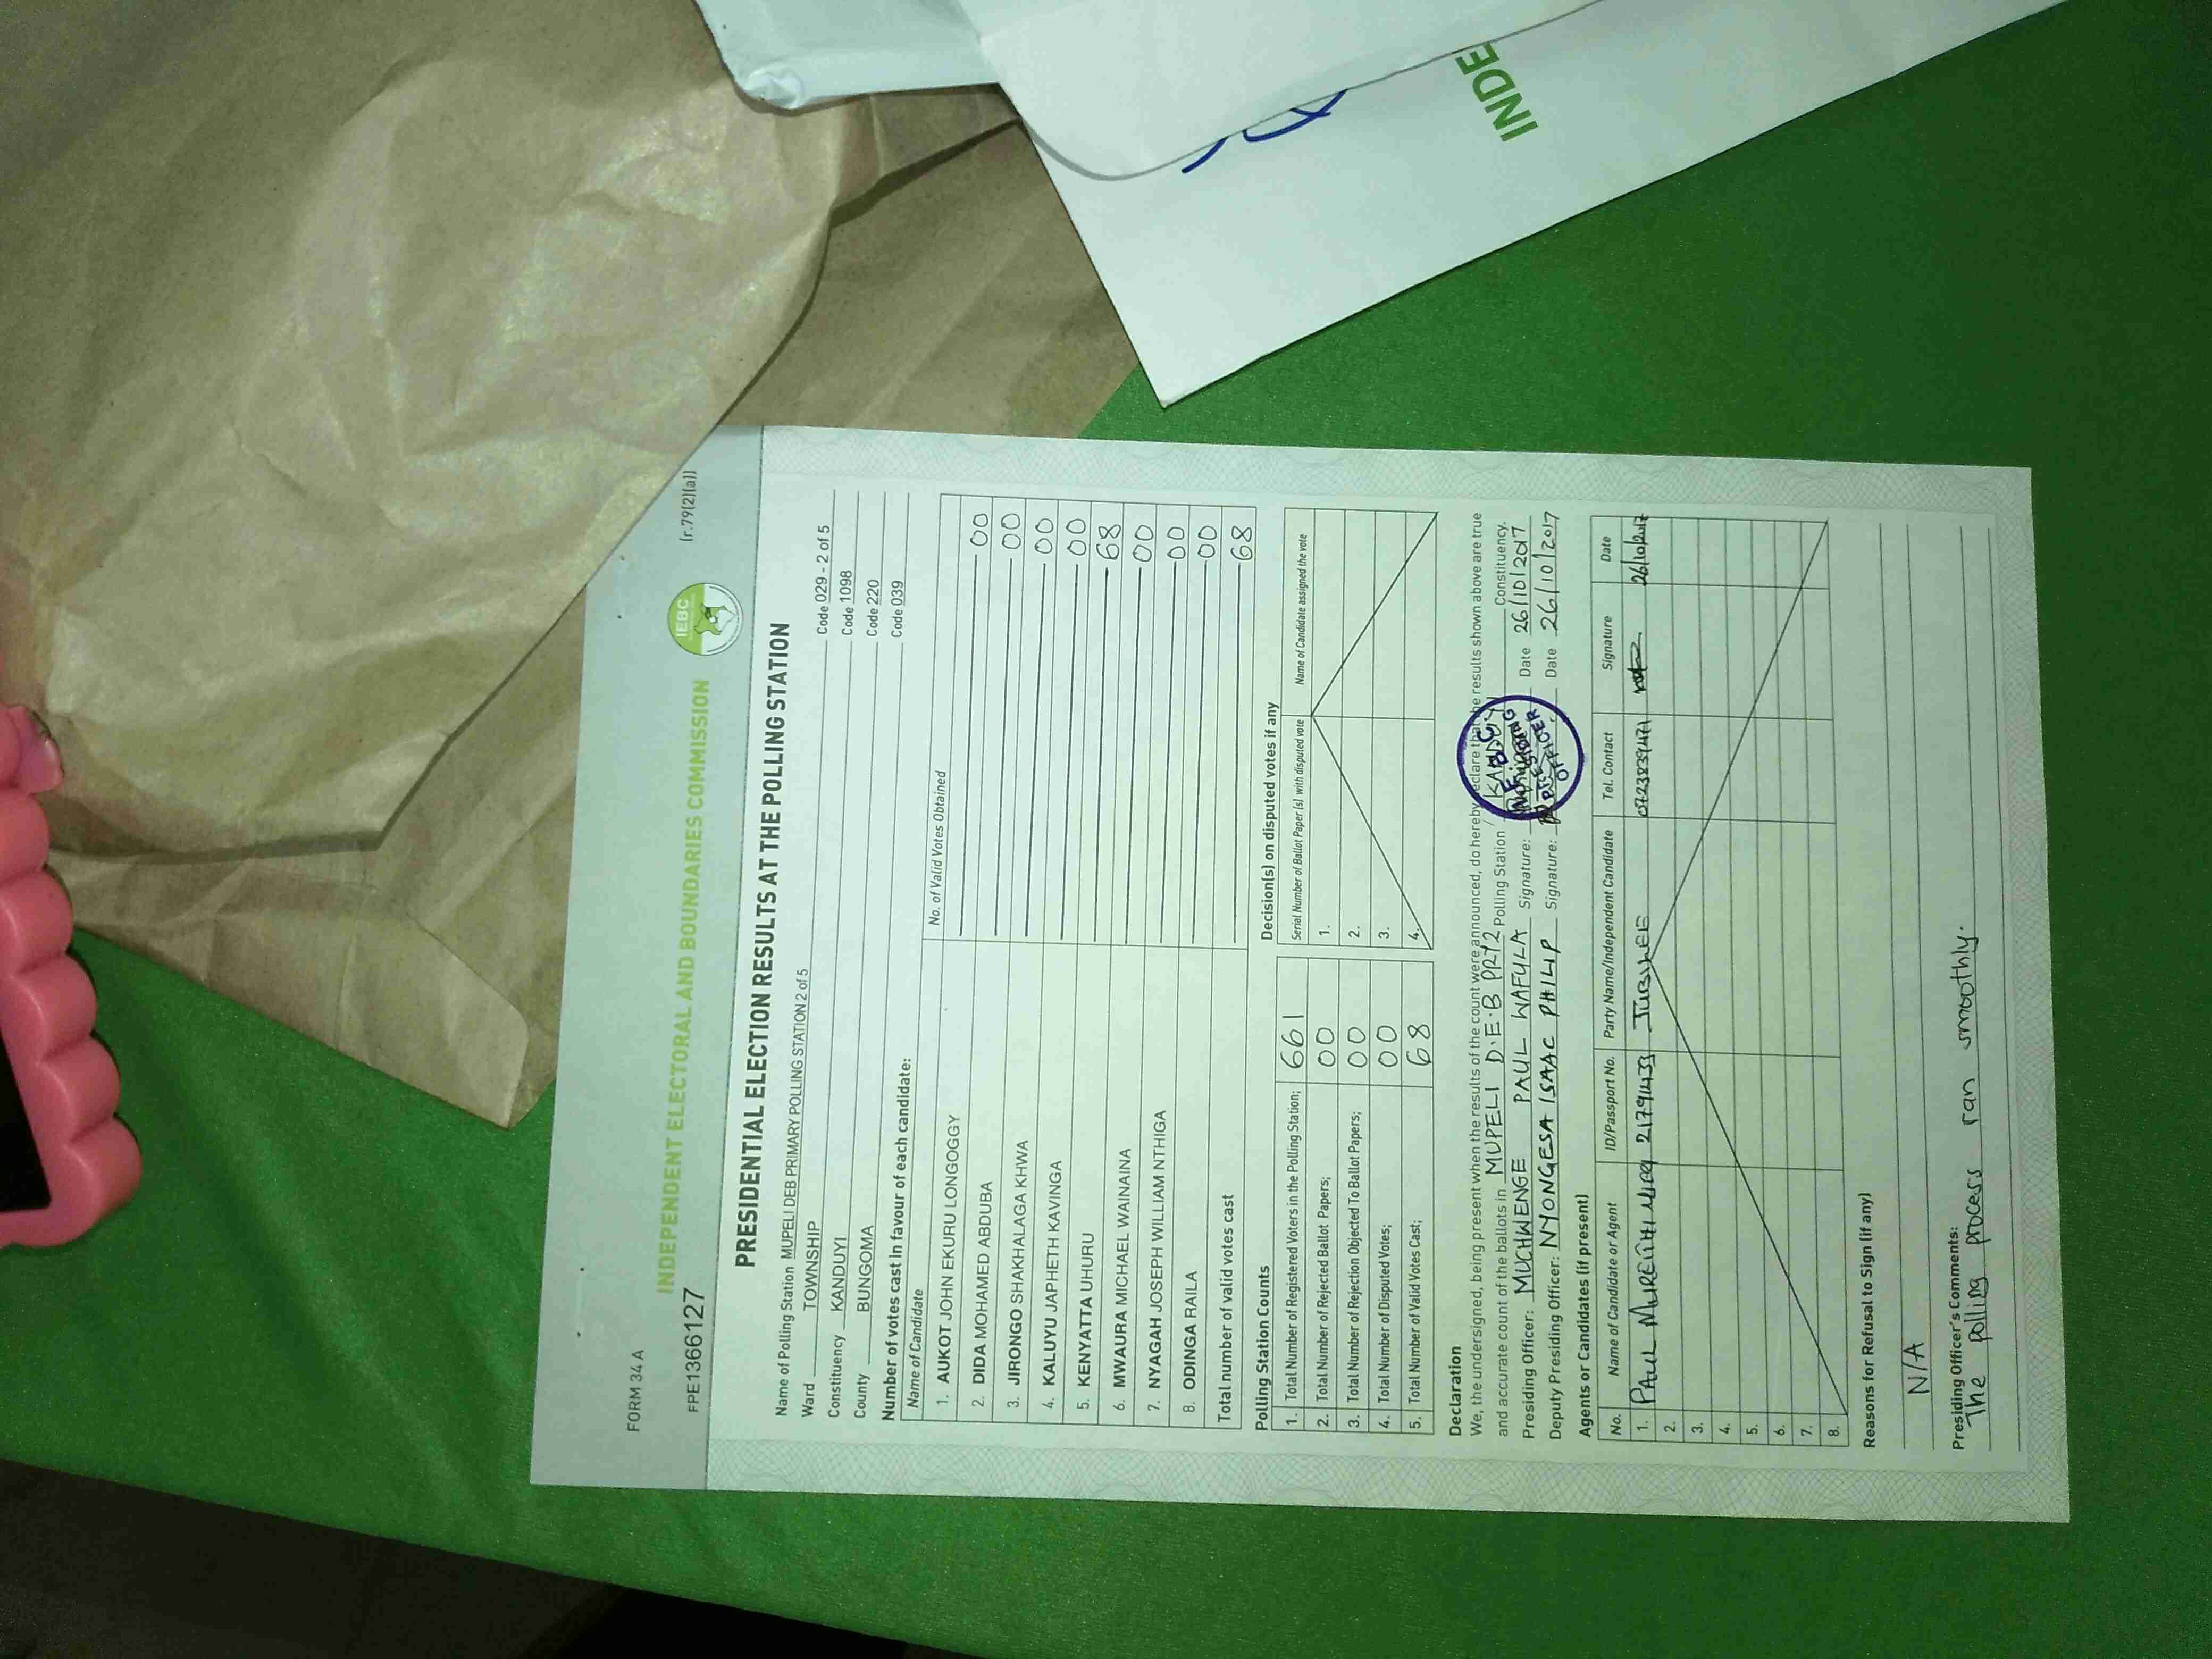 FORM 34 A
(r.79(2)(a))
INDEPENDENT ELECTORAL AND BOUNDARIES COMMISSION
IEBC
FPE1366127
PRESIDENTIAL ELECTION RESULTS AT THE POLLING STATION
Name of Polling Station MUPELI DEB PRIMARY POLLING STATION 2 of 5 Code 029 - 2 of 5
Ward TOWNSHIP Code 1098
Constituency KANDUYI Code 220
County BUNGOMA Code 039
Number of votes cast in favour of each candidate:
Name of Candidate No. of Valid Votes Obtained
1. AUKOT JOHN EKURU LONGOGGY 00
2. DIDA MOHAMED ABDUBA 00
3. JIRONGO SHAKHALAGA KHWA 00
4. KALUYU JAPHETH KAVINGA 00
5. KENYATTA UHURU 68
6. MWAURA MICHAEL WAINAINA 00
7. NYAGAH JOSEPH WILLIAM NTHIGA 00
8. ODINGA RAILA 00
Total number of valid votes cast 68
Polling Station Counts
1. Total Number of Registered Voters in the Polling Station; 661
2. Total Number of Rejected Ballot Papers; 00
3. Total Number of Rejection Objected To Ballot Papers; 00
4. Total Number of Disputed Votes; 00
5. Total Number of Valid Votes Cast; 68
Decision(s) on disputed votes if any
Serial Number of Ballot Paper (s) with disputed vote Name of Candidate assigned the vote
1.
2.
3.
4.
Declaration
We, the undersigned, being present when the results of the count were announced, do hereby declare that the results shown above are true
and accurate count of the ballots in MUPELI D.E.B PRY 2 Polling Station / KANDUYI Constituency.
Presiding Officer: MUCHWENGE PAUL WAFULA Signature: Date 26/10/2017
Deputy Presiding Officer: NYONGESA ISAAC PHILIP Signature: Date 26/10/2017
PRESIDING
OFFICER
Agents or Candidates (if present)
No. Name of Candidate or Agent ID/Passport No. Party Name/Independent Candidate Tel. Contact Signature Date
1. PAUL JUBILEE 26/10/2017
2.
3.
4.
5.
6.
7.
8.
Reasons for Refusal to Sign (if any)
N/A
Presiding Officer's Comments:
The polling process ran smoothly.
INDE